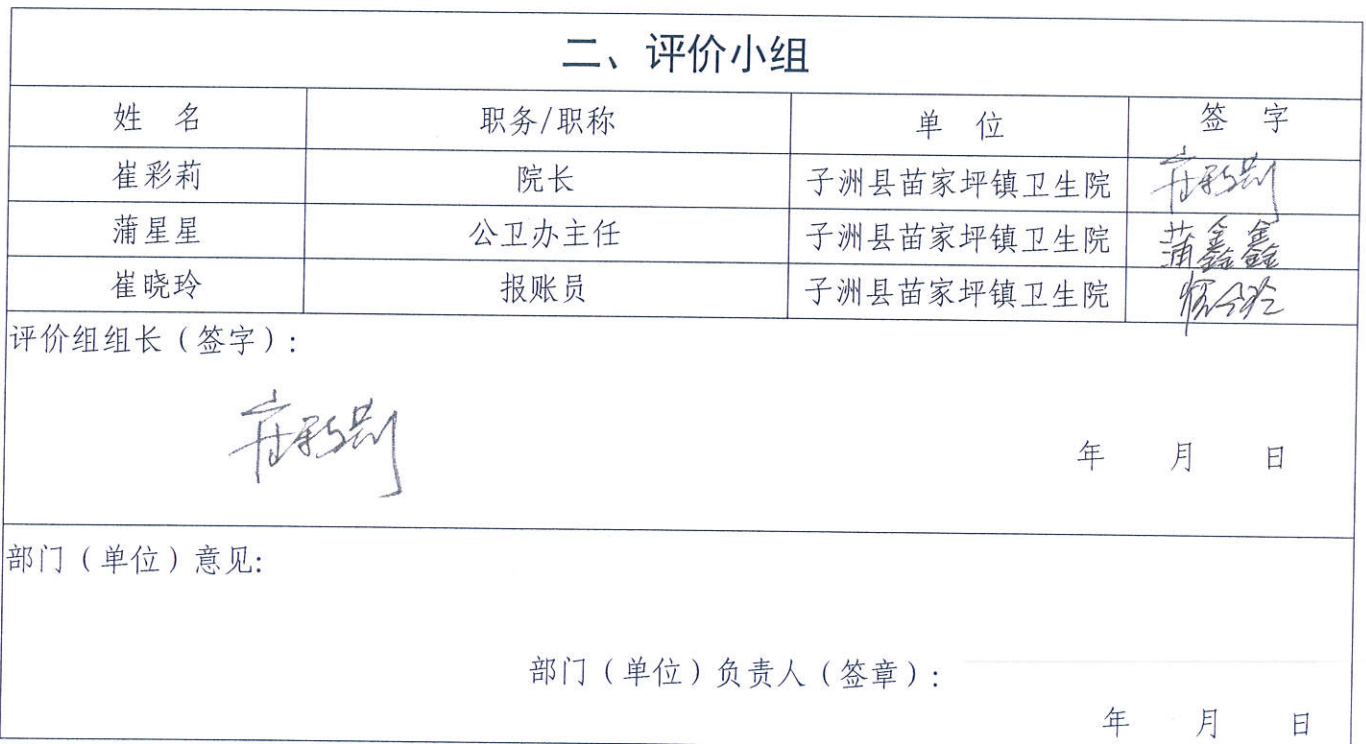 二、评价小组
姓 名 职务/职称 单 位 签 字
崔彩莉 院长 子洲县苗家坪镇卫生院
蒲星星 公卫办主任 子洲县苗家坪镇卫生院 蒲鑫鑫
崔晓玲 报账员 子洲县苗家坪镇卫生院
评价组组长（签字）:
年 月 日
部门（单位）意见:
部门（单位）负责人（签章）:
年 月 日